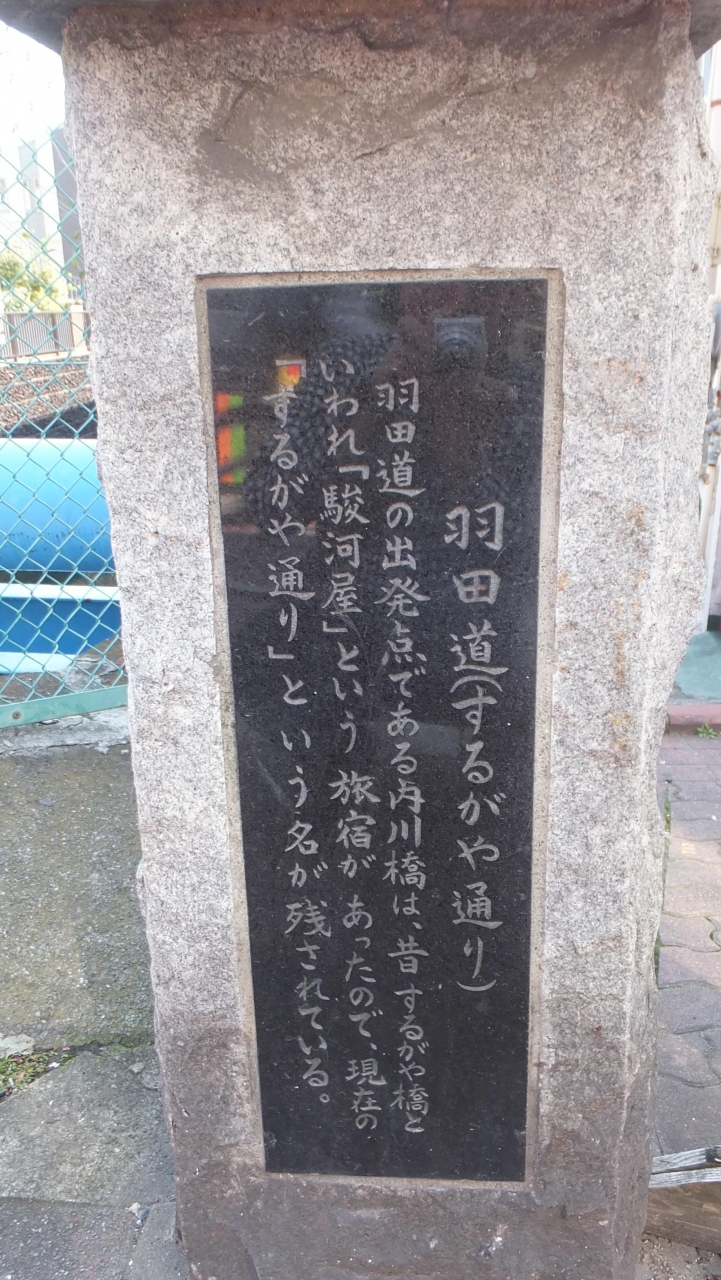 羽田道(するがや通り)
羽田道の出発点である内川橋は、昔するがや橋と
いわれ「駿河屋」という旅宿があったので、現在の
するがや通り」という名が残されている。